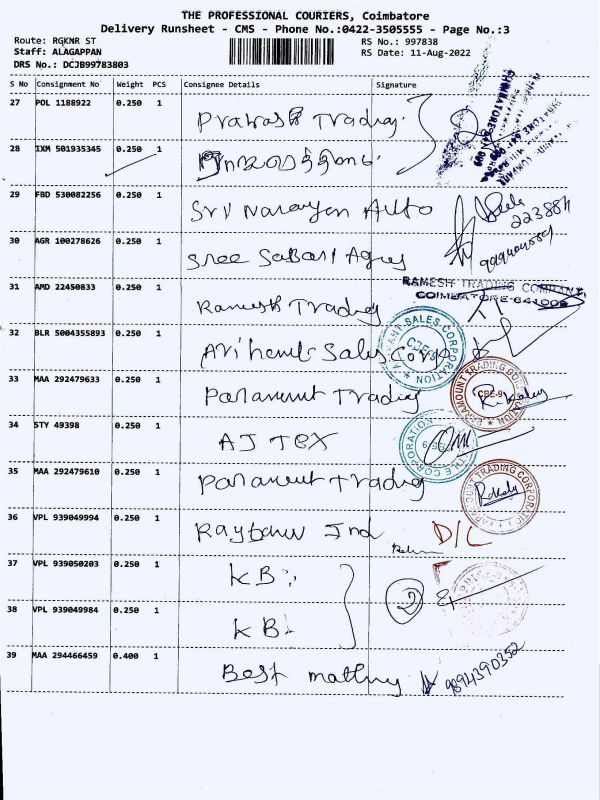 THE PROFESSIONAL COURIERS, Coimbatore
Delivery Runsheet - CMS - Phone No.:0422-3505555 - Page No.:3
Route: RGKNR ST
RS No.: 997838
Staff: ALAGAPPAN
RS Date: 11-Aug-2022
DRS No.: DCJB99783803
S No Consignment No Weight PCS Consignee Details Signature
27 POL 1188922 0.250 1 Trading
28 IXM 501935345 0.250 1
29 FBD 530082256 0.250 1 Sri Narayan Auto
30 AGR 100278626 0.250 1 Sree Sabari
31 AMD 22450833 0.250 1 Ramesh Trading RAMESH TRADING COMPANY,
COIMBATORE-641009
32 BLR 5004355893 0.250 1 Sales Corp SALES CORPORATION CBE-9
33 MAA 292479633 0.250 1 Trading PARAMOUNT TRADING CORPORATION CBE-9
34 STY 49398 0.250 1 AJ TEX
35 MAA 292479610 0.250 1 Trading PARAMOUNT TRADING CORPORATION
36 VPL 939049994 0.250 1 Ind D/C
37 VPL 939050203 0.250 1 KB
38 VPL 939049984 0.250 1 KB 2
39 MAA 294466459 0.400 1 Best 9894390352